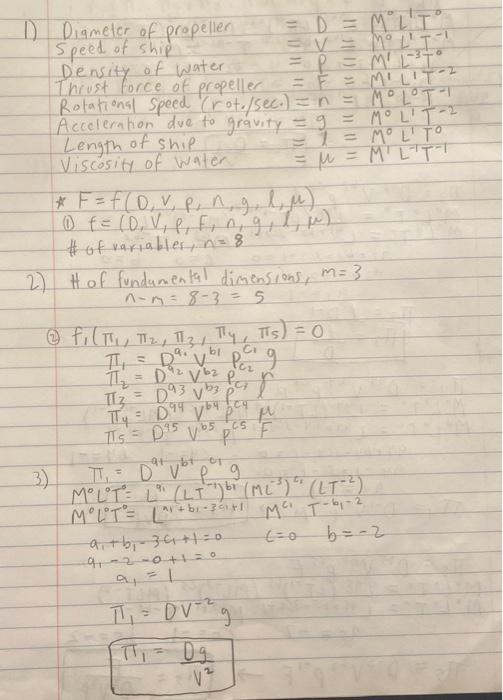 1) Diameter of propeller = D = M⁰ L¹ T⁰
Speed of ship = V = M⁰ L¹ T⁻¹
Density of water = ρ = M¹ L⁻³ T⁰
Thrust force of propeller = F = M¹ L¹ T⁻²
Rotational speed (rot./sec.) = n = M⁰ L⁰ T⁻¹
Acceleration due to gravity = g = M⁰ L¹ T⁻²
Length of ship = l = M⁰ L¹ T⁰
Viscosity of water = μ = M¹ L⁻¹ T⁻¹
* F = f(D, V, ρ, n, g, l, μ)
① f = (D, V, ρ, F, n, g, l, μ)
# of variables, n = 8
2) # of fundamental dimensions, m = 3
n - m = 8 - 3 = 5
② f₁(π₁, π₂, π₃, π₄, π₅) = 0
π₁ = D^a₁ V^b₁ ρ^c₁ g
π₂ = D^a₂ V^b₂ ρ^c₂ n
π₃ = D^a₃ V^b₃ ρ^c₃ l
π₄ = D^a₄ V^b₄ ρ^c₄ μ
π₅ = D^a₅ V^b₅ ρ^c₅ F
3) π₁ = D^a₁ V^b₁ ρ^c₁ g
M⁰L⁰T⁰ = L^a₁ (LT⁻¹)^b₁ (ML⁻³)^c₁ (LT⁻²)
M⁰L⁰T⁰ = L^(a₁+b₁-3c₁+1) M^c₁ T^(-b₁-2)
a₁ + b₁ - 3c₁ + 1 = 0 c = 0 b = -2
a₁ - 2 - 0 + 1 = 0
a₁ = 1
π₁ = DV⁻² g
π₁ = Dg / V²